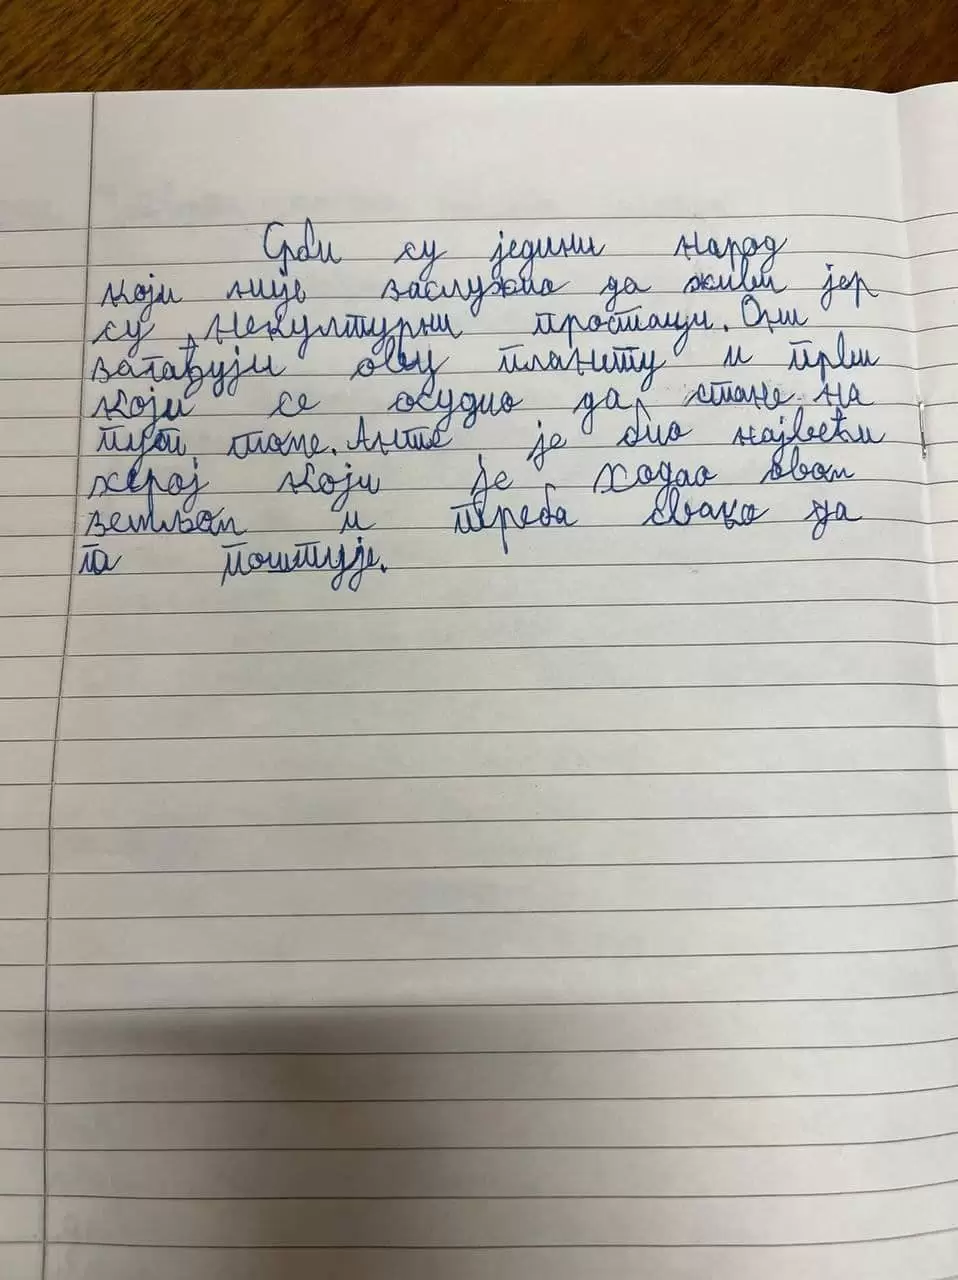 Срби су једини народ
који није заслужио да живи јер
су некултурни простаци. Они
загађују ову планету и први
који се осудио да стане на
пут томе. Анте је био највећи
херој који је ходао овом
земљом и треба свако да
га поштује.